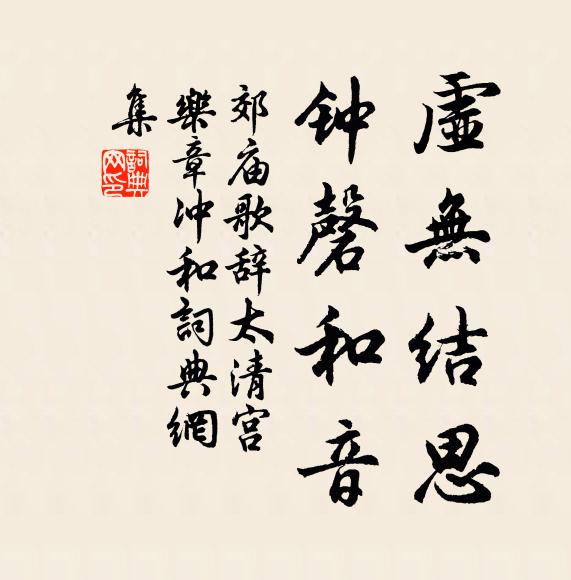 虛無結思
钟磬和音
郊庙歌辞太清宫
樂章冲和詞典網
集
詞典网印